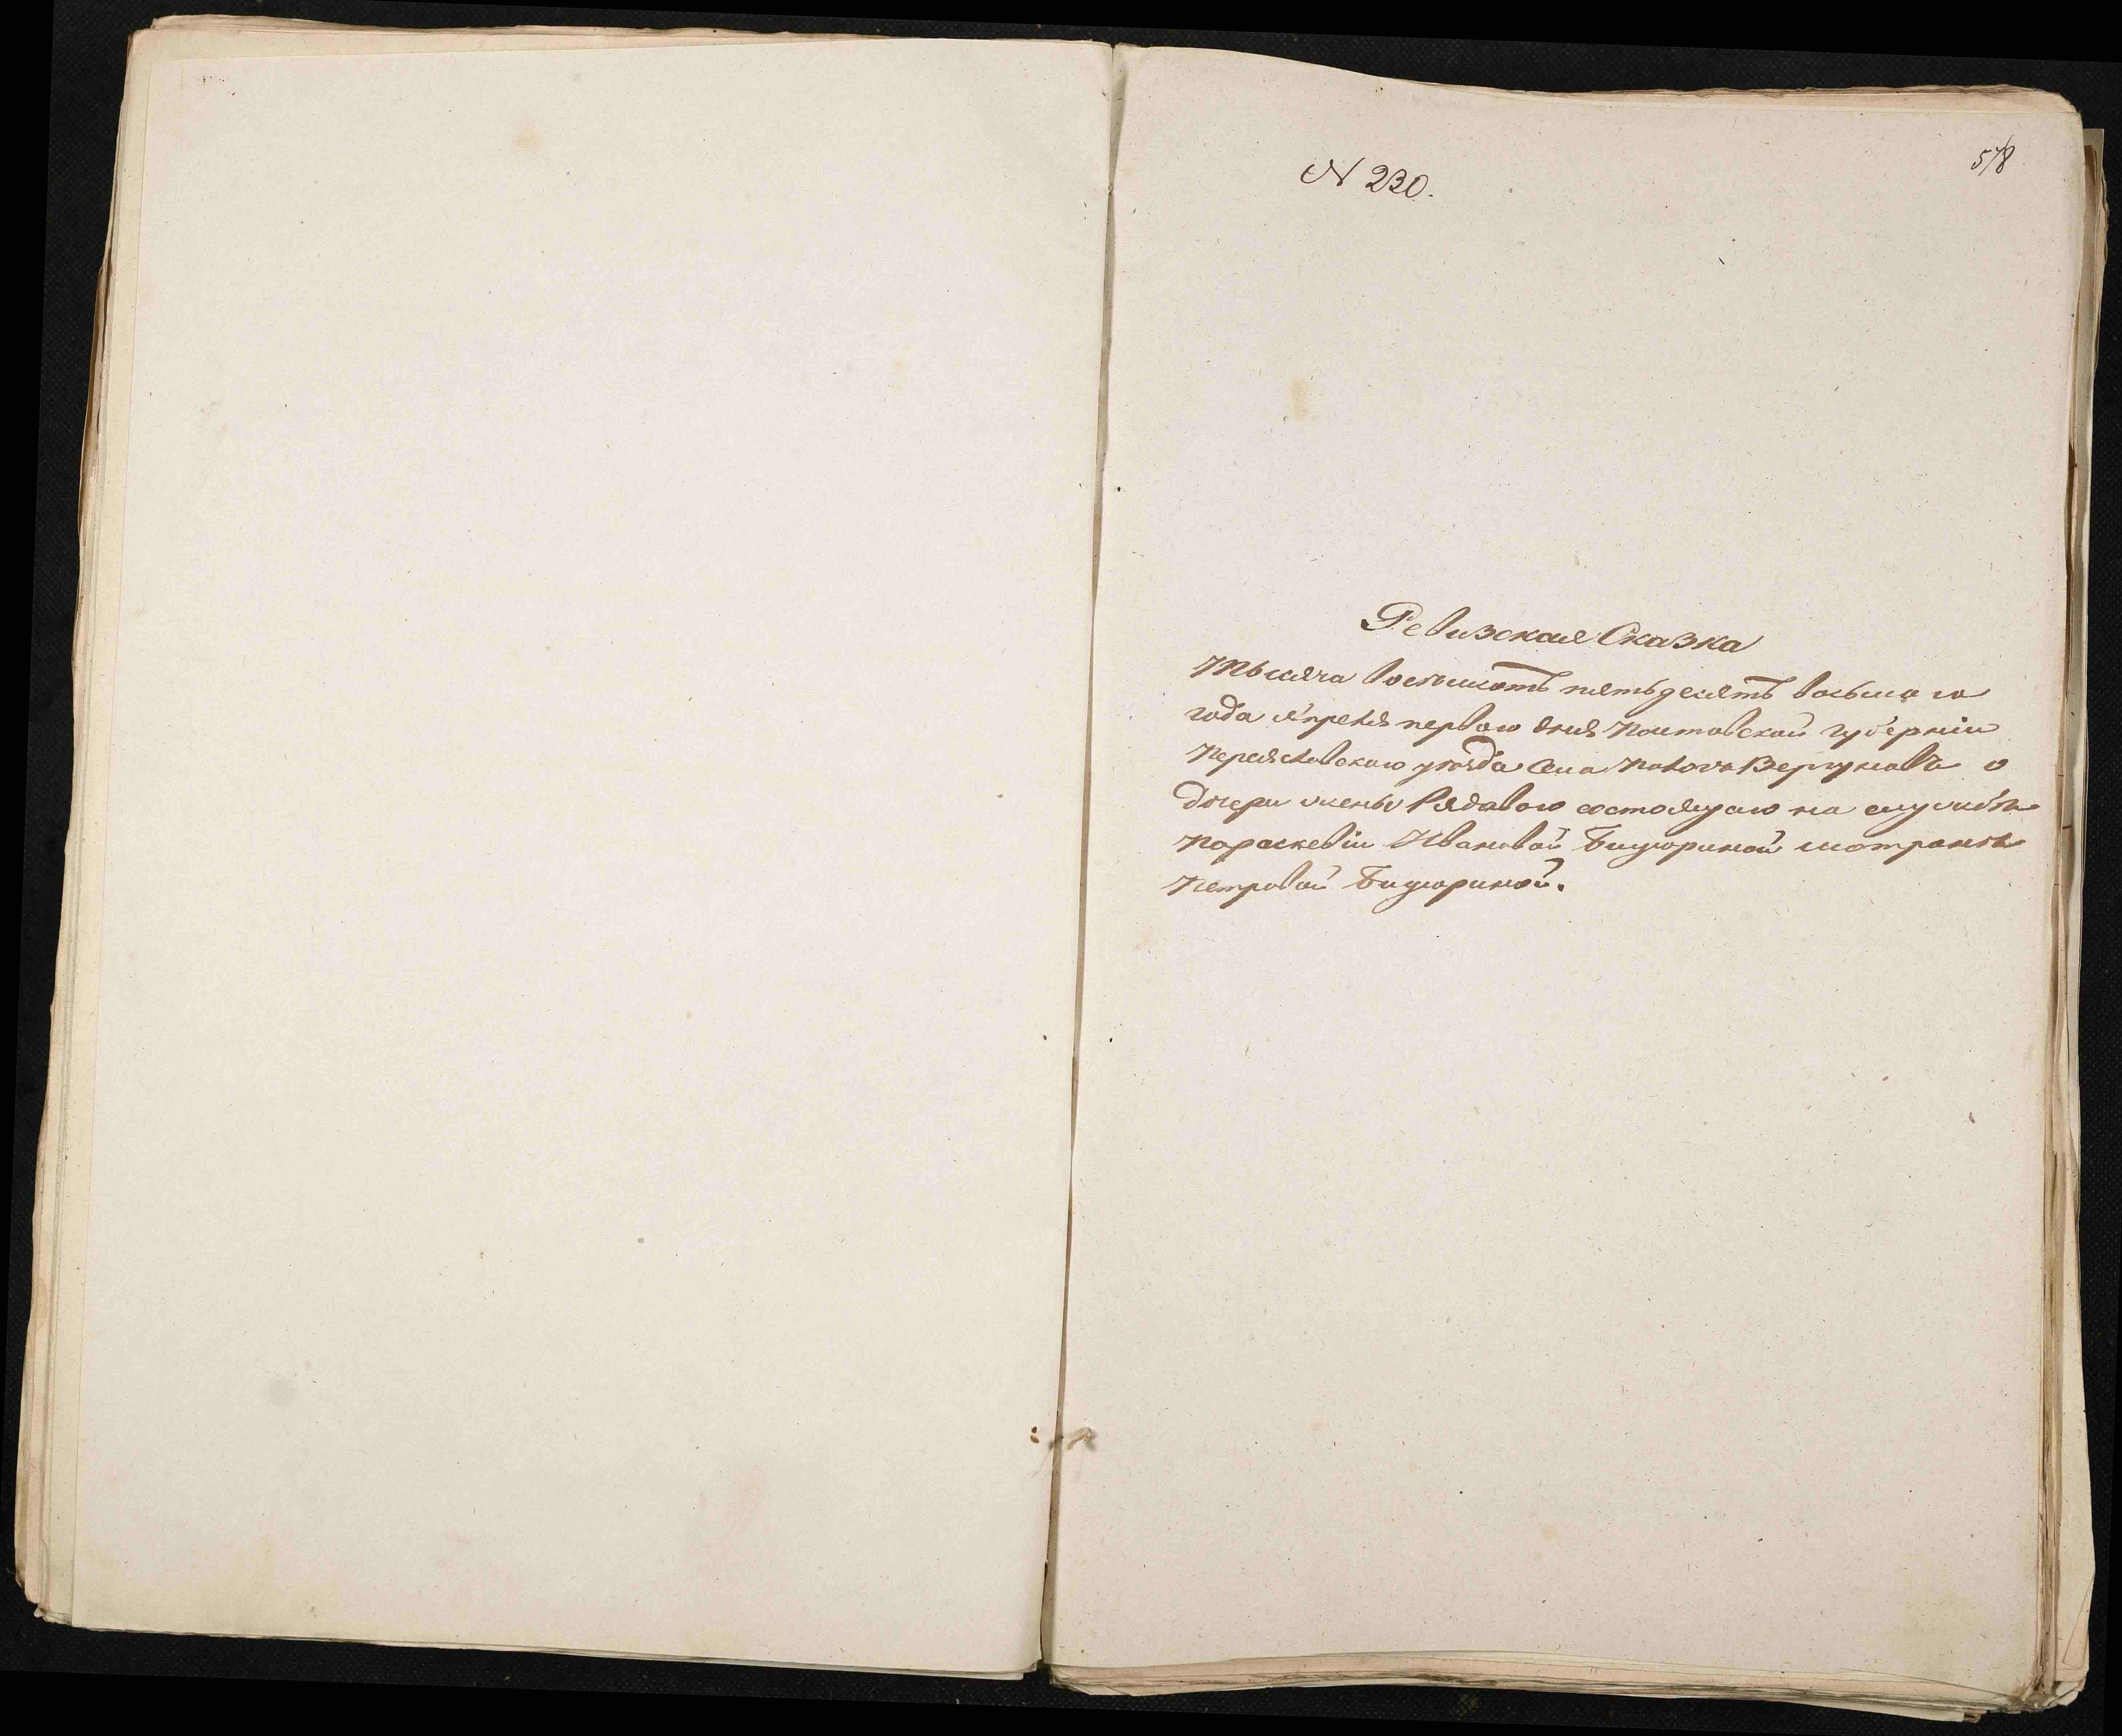 N 230.
578
Ревизская Сказка
Тысяча восемьсотъ пятьдесятъ восьмаго
года Апреля перваго дня Полтавской губерніи
Переяславскаго уезда Села
дочери жены Рядоваго состоящаго на службѣ
Параскевіи Ивановой Бицюриной мотронѣ
Петровой Бицюриной.